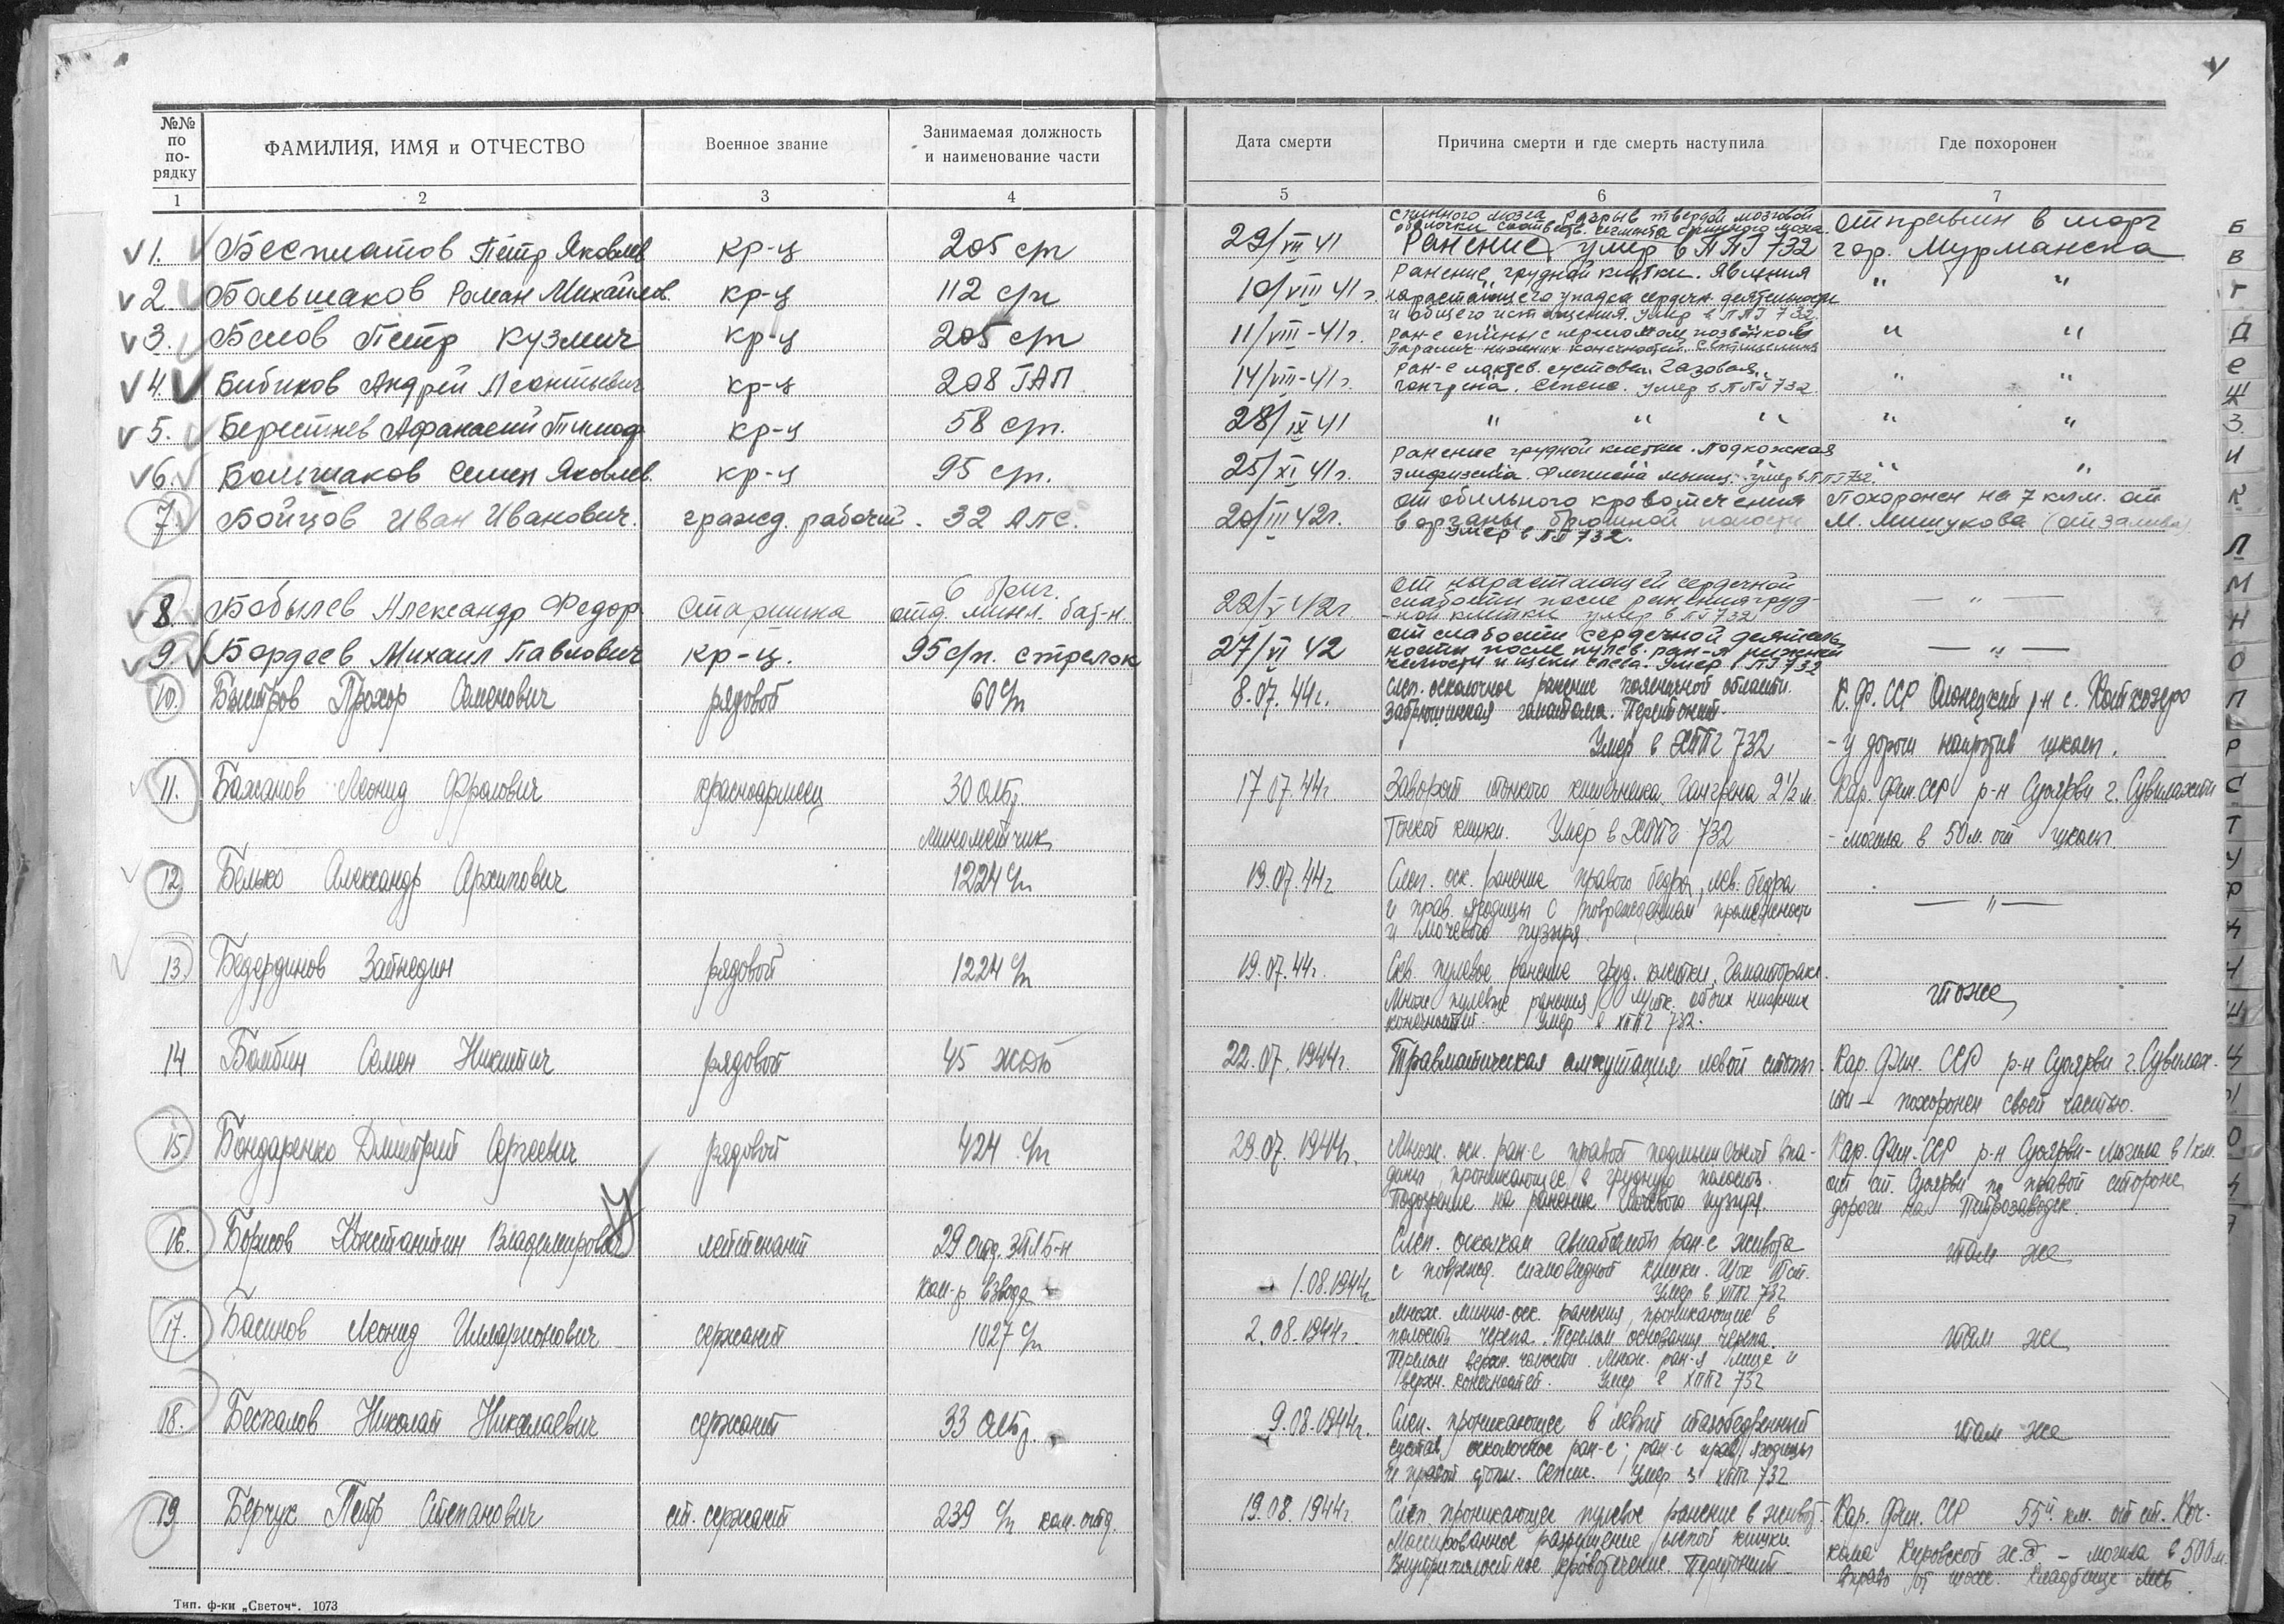 №№ по по-рядку
ФАМИЛИЯ, ИМЯ и ОТЧЕСТВО
Военное звание
Занимаемая должность
и наименование части
Дата смерти
Причина смерти и где смерть наступила
Где похоронен
1 2 3 4 5 6 7
спинного мозга разрыв твердой мозговой
оболочки соответств. сегмента спинного мозга. отправлен в морг
1. Бесплатов Пётр Яковлев кр-ц 205 сп 29/VII 41 Ранение, умер в ППГ 732 гор. Мурманска
Ранение грудной клетки. Явления
2. Большаков Роман Михайлов. кр-ц 112 сп 10/VIII 41 г. нарастающего упадка сердечн. деятельности " "
и общего истощения. Умер в ППГ 732.
3. Белов Петр Кузмич кр-ц 205 сп 11/VIII-41 г. Ран-е спины с переломом позвонков " "
Паралич нижних конечностей.
Ран-е локтев. сустава. Газовая
4. Бибиков Андрей Леонтьевич кр-ц 208 ГАП 14/VIII-41 г. гангрена. Сепсис. Умер в ППГ 732. " "
5. Берестнев Афанасий кр-ц 58 сп. 28/IX 41 " " " " " "
Ранение грудной клетки. Подкожная
6. Большаков Семен Яковлев. кр-ц 95 сп. 25/XI 41 г. эмфизема. Флегмона мышц. Умер в ППГ 732. " "
от обильного кровотечения Похоронен на 7 клм. от
7. Бойцов Иван Иванович. гражд. рабочий. 32 АПС. 20/III 42г. в органы брюшной полости М. Мишукова (от залива)
Умер в ПГ 732.
6 бриг. от нарастающей сердечной
8. Бобылев Александр Федор. Старшина отд. мин. бат-н. 22/V 42г. слабости после ранения груд-
-ной клетки умер в ПГ 732 — " —
от слабости сердечной деятель
9. Бордеев Михаил Павлович кр-ц. 95 сп. стрелок 27/VI 42 ности после пулев. ран-я нижней — " —
челюсти и щеки слева. Умер в ПГ 732
10. Быстров Прохор Семенович рядовой 60 сп 8.07.44г. Слеп. осколочное ранение поясничной области. К.Ф. ССР Олонецкий р-н с. Коткозеро
Забрюшинная гематома. Перитонит.
Умер в ХППГ 732 - у дороги напротив школы.
11. Бажанов Леонид Фролович красноармеец 30 олбр. 17.07.44г Заворот тонкого кишечника. Гангрена 2½ м. Кар. Фин. ССР р-н Суоярви г. Сувилахти
минометчик Тонкой кишки. Умер в ХППГ 732 - могила в 50 м. от школы.
12 Белько Александр Архипович 1224 сп 19.07.44г Слеп. оск. ранение правого бедра, лев. бедра
и прав. ягодицы с повреждением промежности — " —
и мочевого пузыря
13. Бедердинов Зайнедин рядовой 1224 сп 19.07.44г. Скв. пулевое ранение груд. клетки, Гемоторакс.
Множ. пулевые ранения мягк. обоих нижних тоже
конечностей. Умер в ХППГ 732.
14 Бомбин Семен Никитич рядовой 45 22.07.1944г. Травматическая ампутация левой стопы. Кар. Фин. ССР р-н Суоярви г. Сувилах-
ти - похоронен своей частью.
15. Бондаренко Дмитрий Сергеевич рядовой 424 сп 29.07.1944г. Множ. оск. ран-е правой подмышечной впа- Кар. Фин. ССР р-н Суоярви - могила в 1 км.
дины, проникающее в грудную полость. от ст. Суоярви по правой стороне
Подозрение на ранение мочевого пузыря. дороги на Петрозаводск.
16. Борисов Константин Владимирович лейтенант 29 отд. б-н Слеп. осколком авиабомбы ран-е живота там же
ком-р взвода 1.08.1944г. с поврежд. сигмовидной кишки. Шок
Умер в ХППГ 732
Множ. минно-оск. ранения, проникающие в
17. Басинов Леонид Илларионович сержант 1027 сп 2.08.1944г. полость черепа. Перелом основания черепа. там же
Перелом верхн. челюсти. Множ. ран-я лица и
верхн. конечностей. Умер в ХППГ 732
18. Бесхалов Николай Николаевич сержант 33 олбр 9.08.1944г. Слеп. проникающее в левый тазобедренный там же
сустав осколочное ран-е; ран-е прав. ягодицы
и правой стопы. Сепсис. Умер в ХППГ 732
19 Берчук Петр Степанович ст. сержант 239 сп ком. отд. 19.08.1944г. Слеп. проникающее пулевое ранение в живот. Кар. Фин. ССР 55й км. от ст. Коч-
Массированное разрушение слепой кишки. кома Кировской ж.д. - могила в 500 м.
Внутриполостное кровотечение. Перитонит вправо от шоссе. Кладбище
Тип. ф-ки „Светоч“. 1073
Б
В
Г
Д
Е
Ж
З
И
К
Л
М
Н
О
П
Р
С
Т
У
Ф